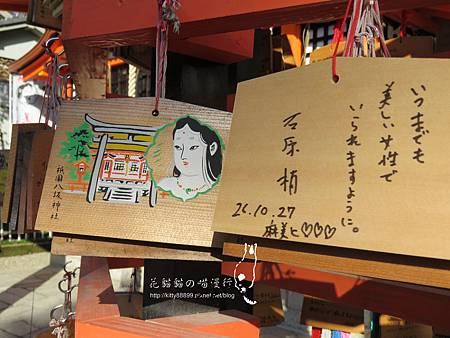 いつまでも
美しい女性で
いられますように。
石原 梢
26.10.27
麻美ヒ♡♡♡
祇園八坂神社
花貓貓の喵漫行
http://kitty88899.pixnet.net/blog